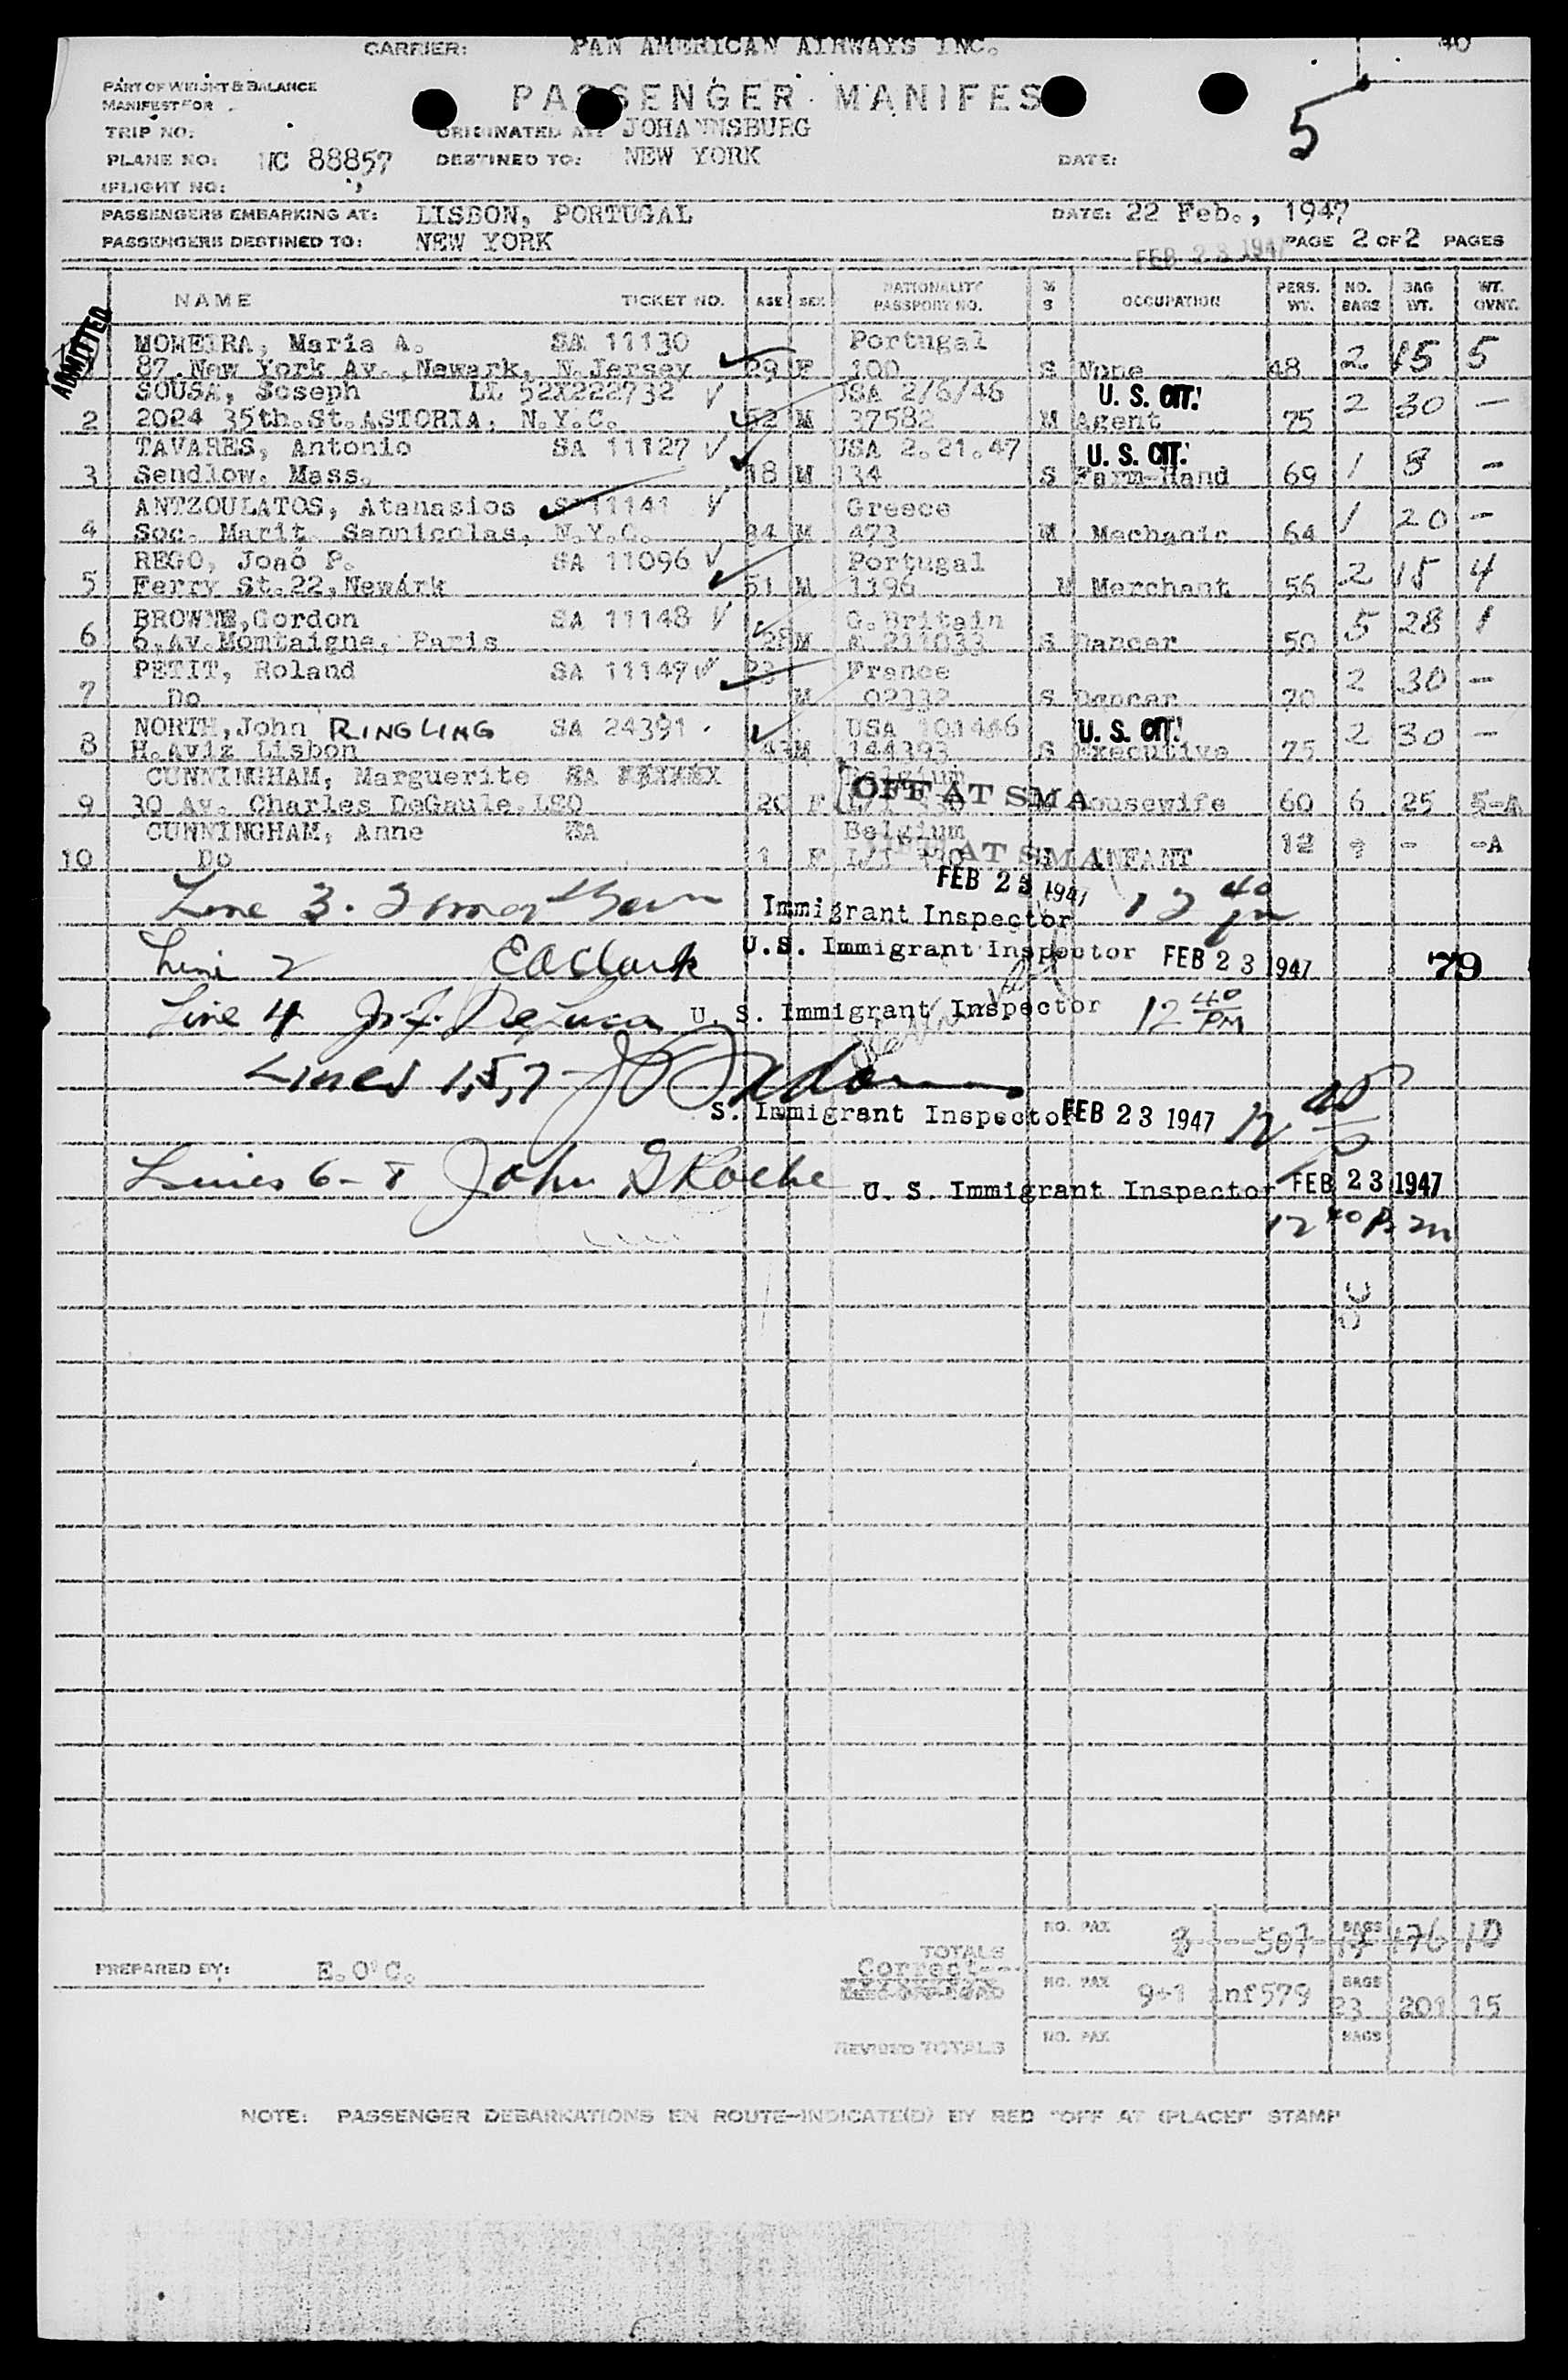 CARRIER: PAN AMERICAN AIRWAYS INC. 40
PART OF WEIGHT & BALANCE
MANIFEST FOR
PASSENGER MANIFES
5
TRIP NO: ORIGINATED AT: JOHANNSBURG
PLANE NO: NC 88857 DESTINED TO: NEW YORK DATE:
(FLIGHT NO:
PASSENGERS EMBARKING AT: LISBON, PORTUGAL DATE: 22 Feb., 1947
PASSENGERS DESTINED TO: NEW YORK PAGE 2 OF 2 PAGES
FEB 23 1947
NAME TICKET NO. AGE SEX NATIONALITY PASSPORT NO. M S OCCUPATION PERS. WT. NO. BAGS BAG WT. WT. OVWT.
ADMITTED
MOMEIRA, Maria A. SA 11130 Portugal
87.New York Av.,Newark, N.Jersey 29 F 100 S None 48 2 15 5
SOUSA, Joseph LL 52X222732 USA 2/6/46 U. S. CIT.
2 2024 35th.St.ASTORIA. N.Y.C. 52 M 37582 M Agent 75 2 30 -
TAVARES, Antonio SA 11127 USA 2.21.47 U. S. CIT.
3 Sendlow. Mass. 18 M 134 S Farm-Hand 69 1 8 -
ANTZOULATOS, Atanasios S 11141 Greece
4 Soc. Marit. Sannicolas, N.Y.C. 34 M 473 M Mechanic 64 1 20 -
REGO, Joaõ P. SA 11096 Portugal
5 Ferry St.22,Newark 51 M 1196 M Merchant 56 2 15 4
BROWNE,Gordon SA 11148 G.Britain
6 6.Av.Momtaigne, Paris 28 M A 211033 S Dancer 50 5 28 1
PETIT, Roland SA 11149 23 France
7 Do M 02332 S Dancer 70 2 30 -
NORTH,John RINGLING SA 24391 USA 101446 U. S. CIT.
8 H.Aviz Lisbon 43 M 144393 S Executive 75 2 30 -
CUNNINGHAM, Marguerite SA Belgium
9 30 Av. Charles DeGaule,LEO 20 F OFF AT SMA Housewife 60 6 25 5-A
CUNNINGHAM, Anne SA Belgium
10 Do 1 F L/I AT SMA INFANT 12 - -A
Line 3. FEB 23 1947
Immigrant Inspector 12 40
Line 2 E A Clark U.S. Immigrant Inspector FEB 23 1947 79
Line 4 J. F. DeLuca U. S. Immigrant Inspector 12 40 PM
Lines 1,5,7
S. Immigrant Inspector FEB 23 1947 12
Lines 6-8 John G Roche U. S. Immigrant Inspector FEB 23 1947
12 40 P. m
TOTALS NO. PAX 8 507 BAGS 17 176 10
PREPARED BY: E.O'C. Correct
NO. PAX 9+1 inf 579 BAGS 23 201 15
REVISED TOTALS NO. PAX BAGS
NOTE: PASSENGER DEBARKATIONS EN ROUTE-INDICATE(D) BY RED "OFF AT (PLACE)" STAMP